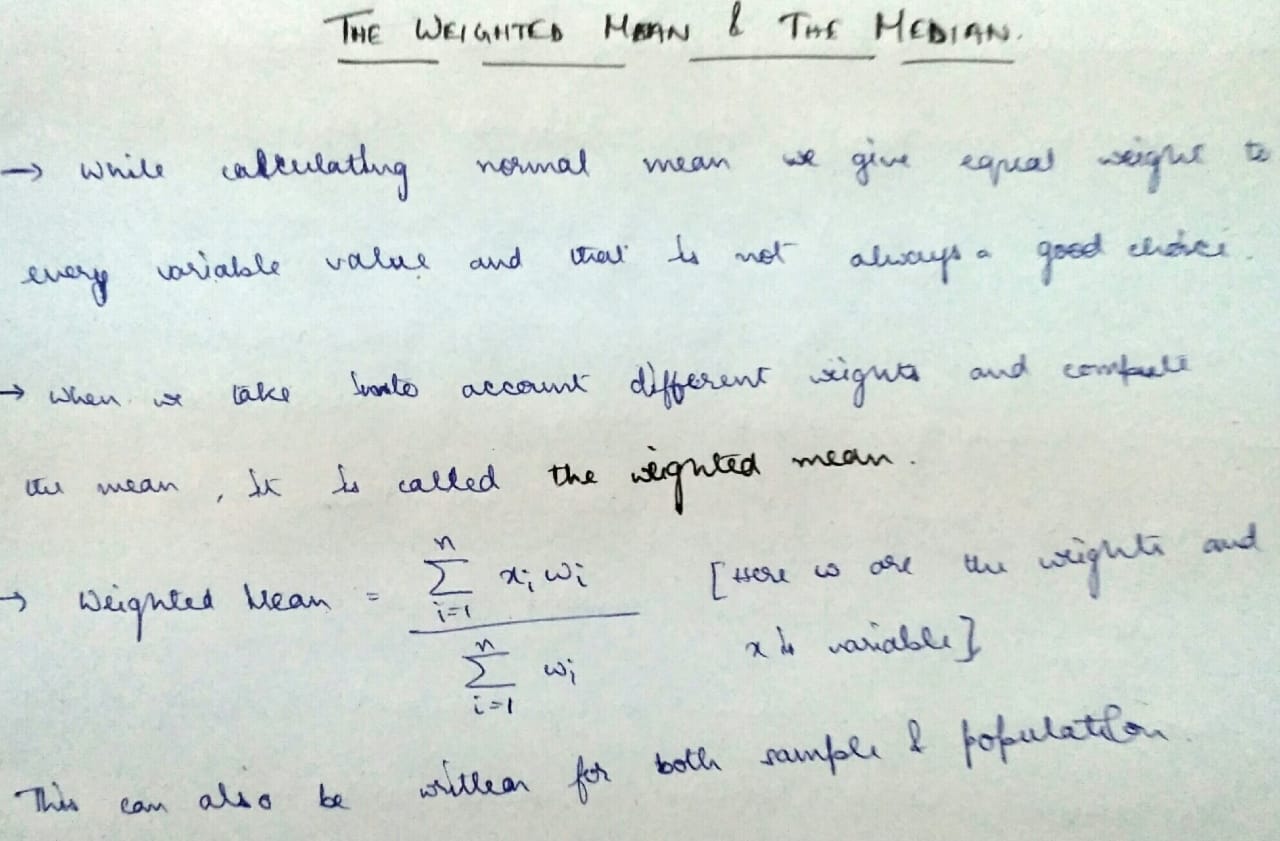 THE WEIGHTED MEAN & THE MEDIAN.
→ While calculating normal mean we give equal weight to
every variable value and that is not always a good choice.
→ When we take into account different weights and compute
the mean, it is called the weighted mean.
→ Weighted Mean = \frac{\sum_{i=1}^{n} x_i w_i}{\sum_{i=1}^{n} w_i} [Here w are the weights and
x is variable]
This can also be written for both sample & population.